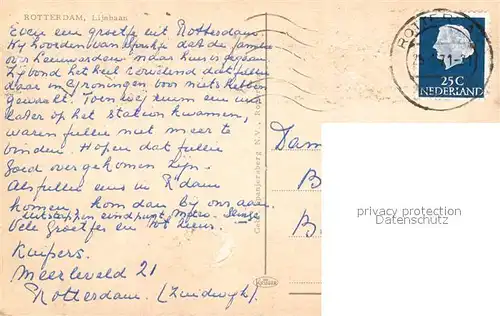 ROTTERDAM, Lijnbaan
Even een groetje uit Rotterdam.
Wij hoorden van afrikje dat de familie
over Leeuwarden naar huis is gegaan.
Zij vond het heel vervelend dat jullie
daar in Groningen voor niets hebben
gewacht. Toen wij ruim een uur
later op het station kwamen,
waren jullie niet meer te
vinden. Hopen dat jullie
goed over gekomen zijn.
Als jullie eens in R'dam
komen, kom dan bij ons aan.
uitstappen eindpunt metro. Slinge
Vele Groetjes en tot ziens.
Kuipers.
Meerleveld 21
Rotterdam. (Zuidwijk).
Spanjersberg N.V., Ro
ROTTER
71
25C
NEDERLAND
Dam
B
B
privacy protection
oldthing.com